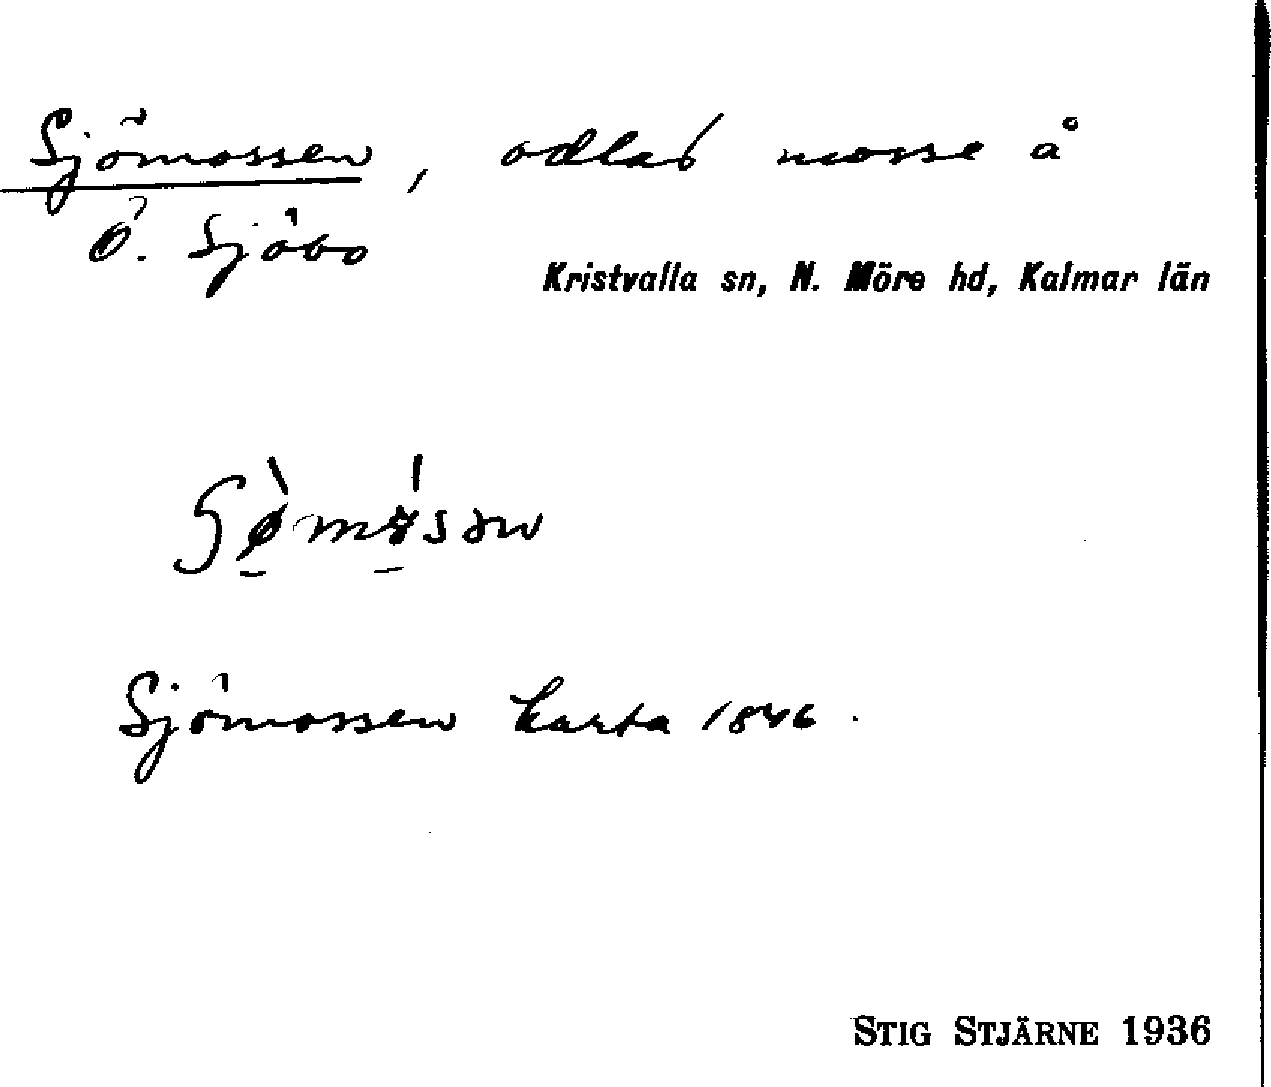 Sjömossen, odlad mosse å
Ö. Sjöbo
Kristvalla sn, N. Möre hd, Kalmar län
Sjömossen karta 1846.
STIG STJÄRNE 1936